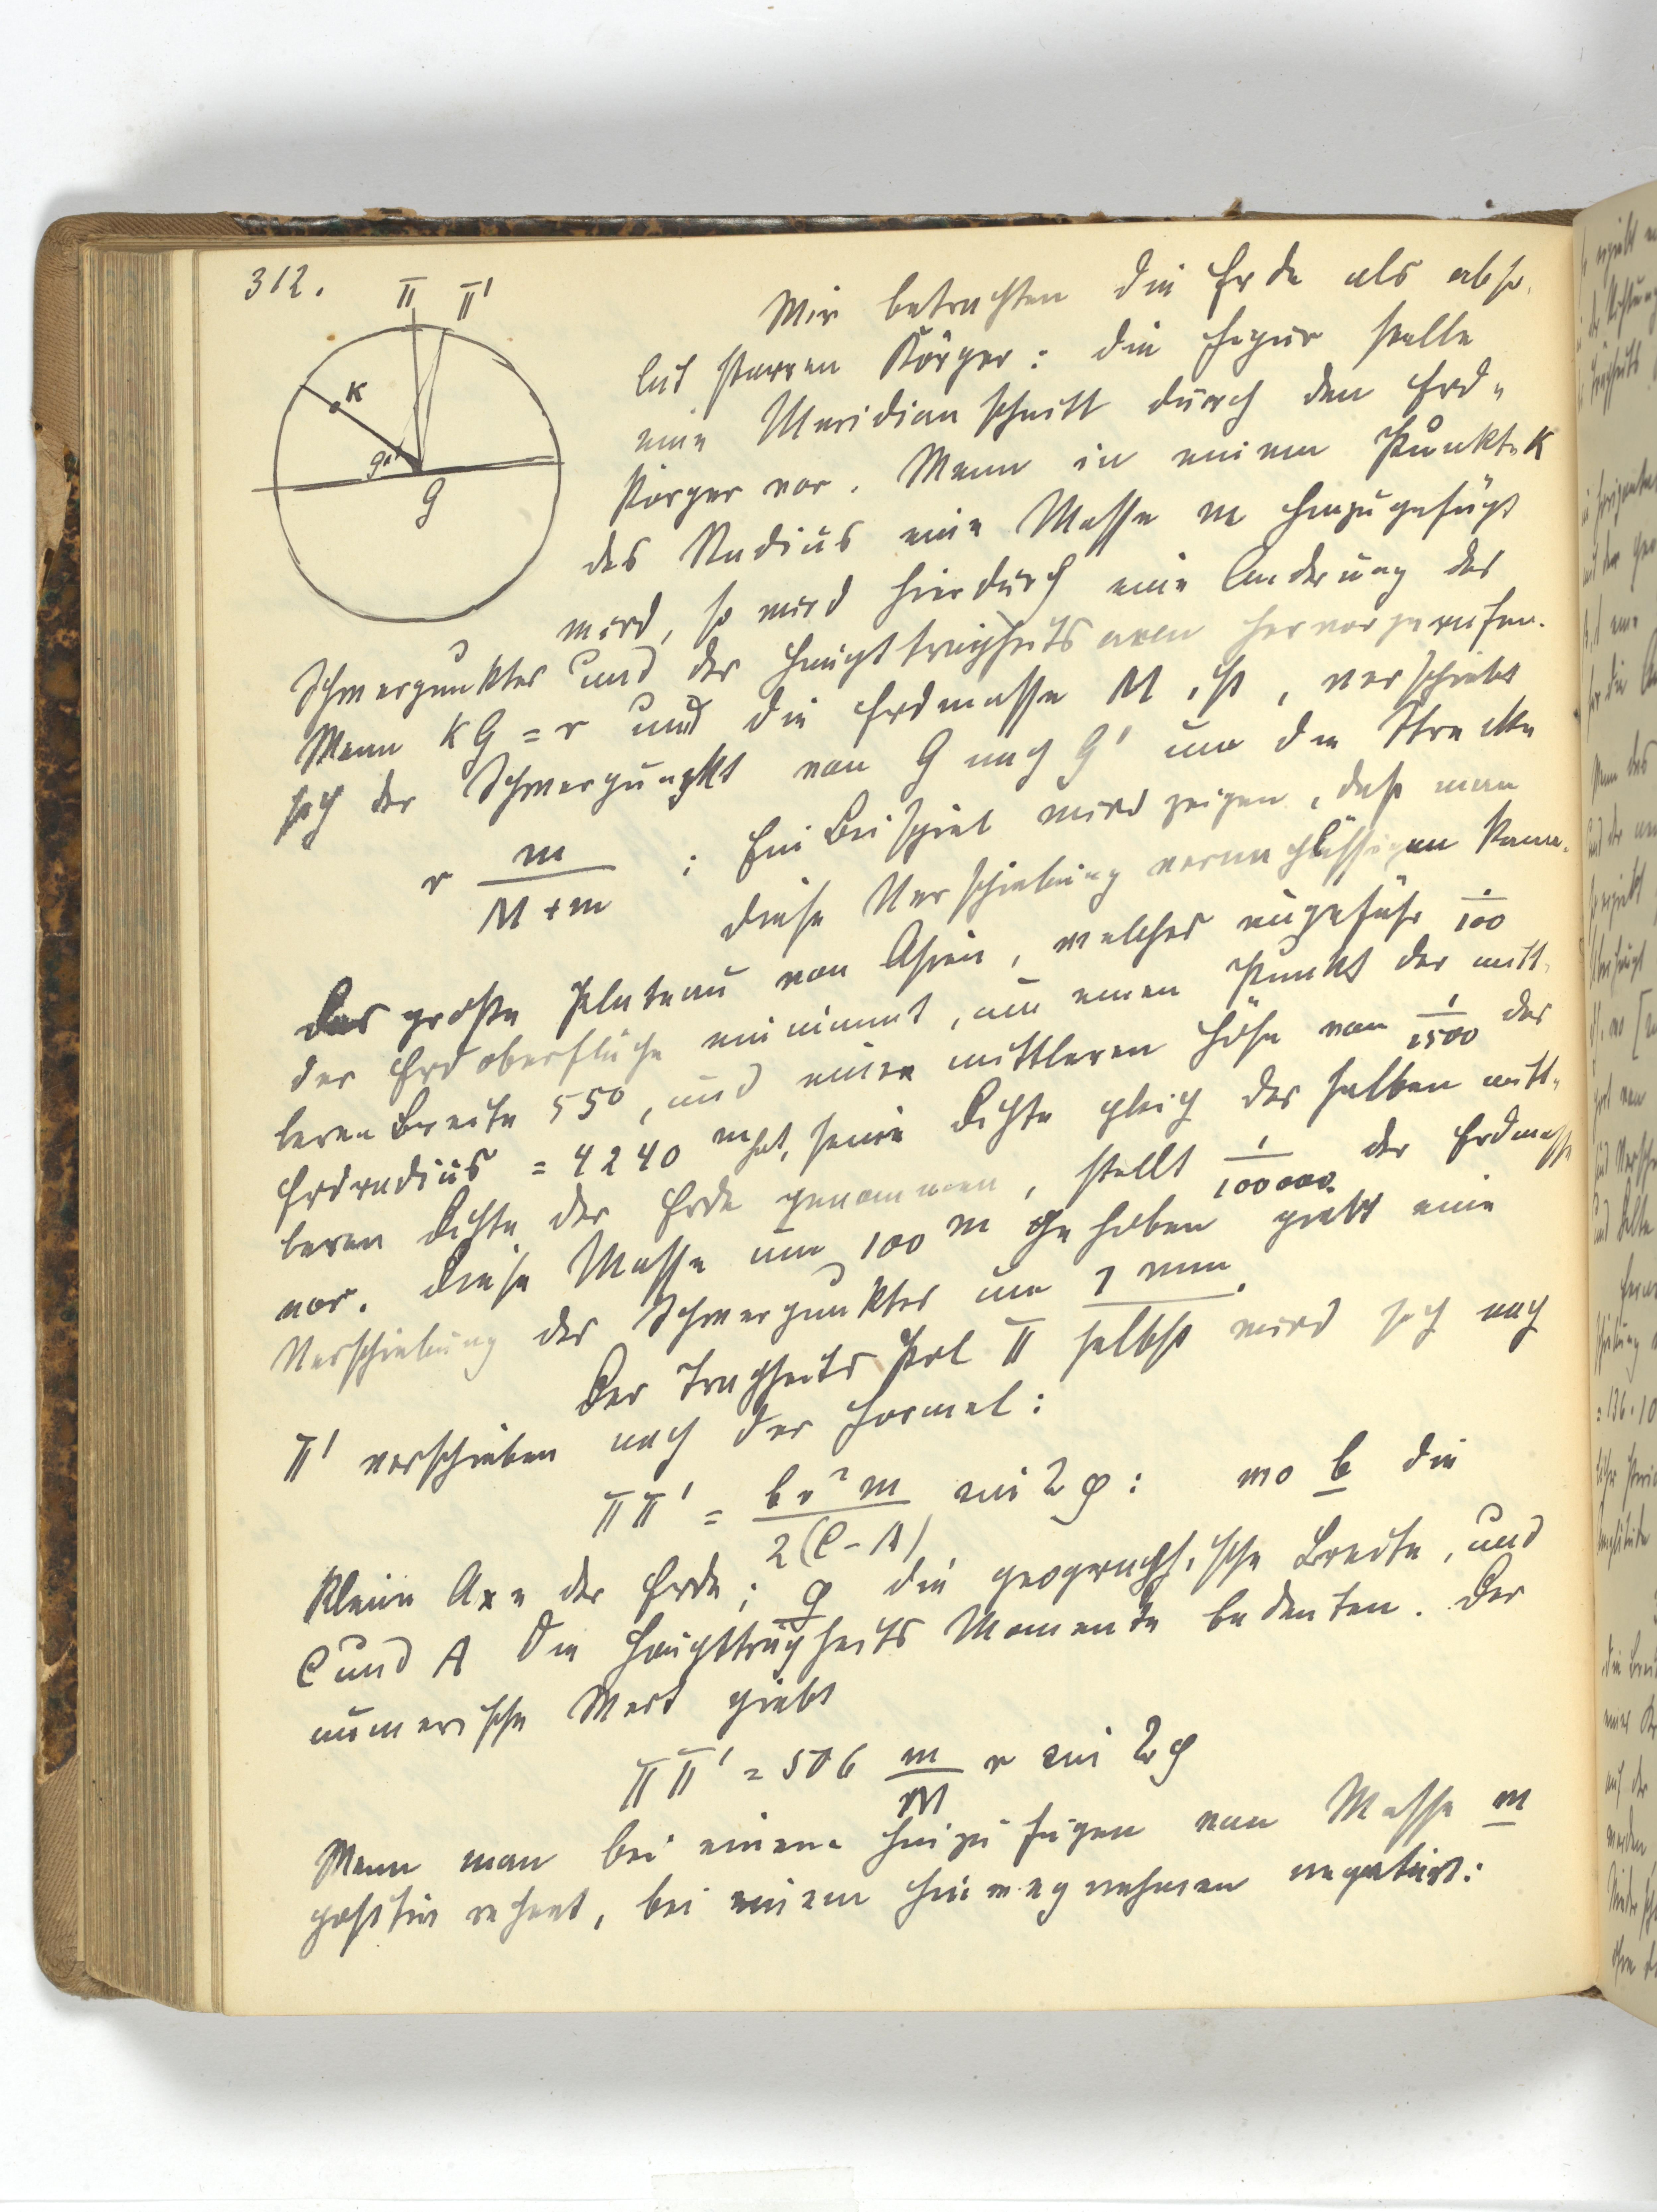 312.
π π'
K
g'
G
Wir betrachten die Erde als abso-
lut starren Körper: die Figur stelle
eine Meridianschnitt durch den Erd-
körper vor. Wenn in einem Punkte K
des Radius eine Masse m hinzugefügt
wird, so wird hierdurch eine Anderung des
Schwerpunktes und der Hauptträgheitsaxen hervorgerufen.
Wenn KG = r und die Erdmasse M ist, verschiebt
sich der Schwerpunkt von G nach G' um die Strecke
r m/(M+m) : Ein Beispiel wird zeigen, daß man
diese Verschiebung vernachlässigen kann.
Das große Plateau von Asien, welches ungefähr 1/100
der Erdoberfläche einnimmt, um einen Punkt der mitt-
leren Breite 55°, und einer mittleren Höhe von 1/1500 des
Erdradius = 4240 m hat, seine Dichte gleich der halben mitt-
leren Dichte der Erde genommen, stellt 1/100000 der Erdmasse
vor. Diese Masse um 100 m gehoben giebt eine
Verschiebung des Schwerpunktes um 1 mm.
Der Trägheits Pol π selbst wird sich nach
π' verschieben nach der Formel:
ππ' = b r² m / 2(C-A) sin 2φ : wo b die
kleine Axe der Erde; φ die geographische Breite, und
C und A die Hauptträgheits Momente bedeuten. Der
numerische Wert giebt
ππ' = 506 m/M r sin 2φ
Wenn man bei einem Hinzufügen von Masse m
positiv rechnet, bei einem Hinwegnehmen negativ: